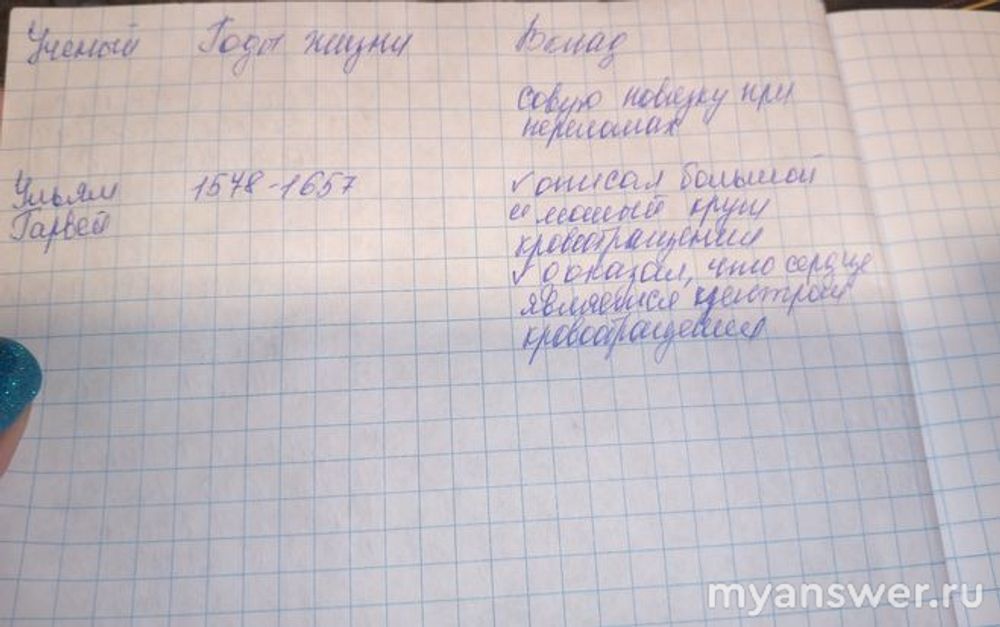 Ученый Годы жизни Вклад
совую повязку при
переломах
Уильям 1578-1657 ✓ описал большой
Гарвей и малый круги
кровообращения
✓ доказал, что сердце
является центром
кровообращения
myanswer.ru